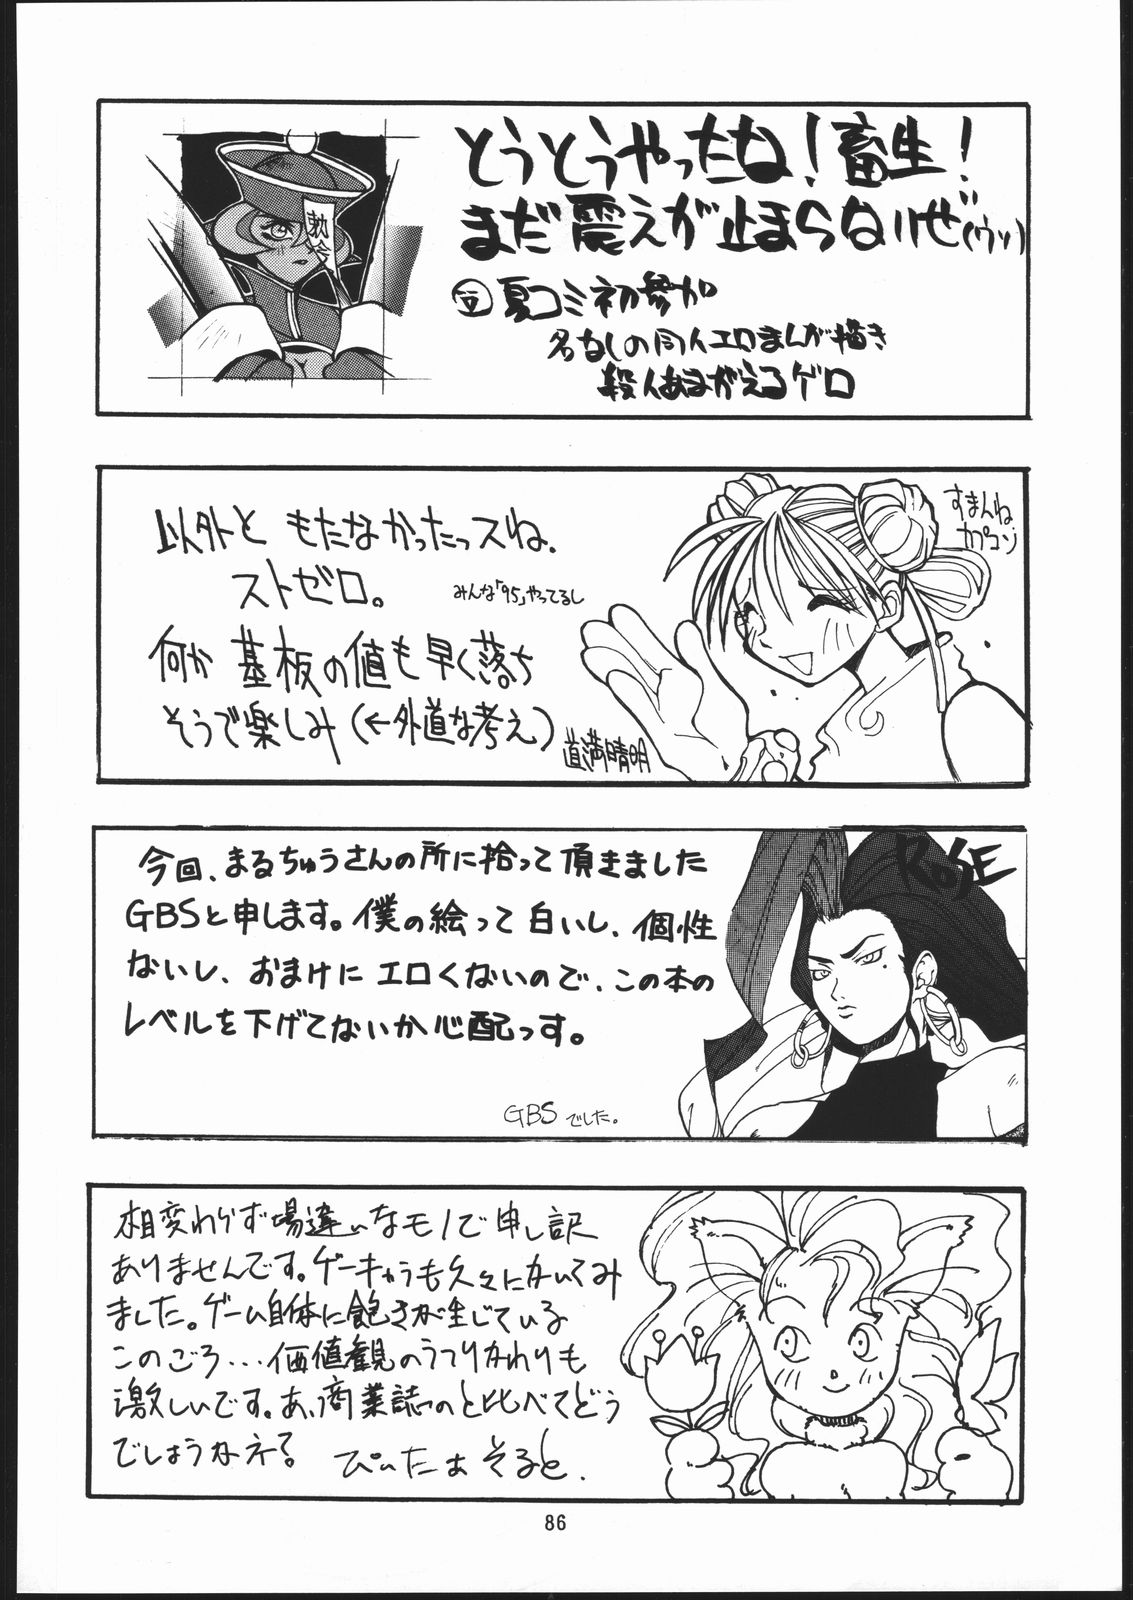 とうとうやったな！畜生！
まだ震えが止まらないぜ(ウッ)
夏コミ初参加
名なしの同人エロまんが描き
殺人あまがえるゲロ
勅令
以外と もたなかったっスね.
ストゼロ。
みんな「95」やってるし
何か 基板の値も早く落ち
そうで楽しみ(←外道な考え)
道満晴明
すまんね
カプコン
今回、まるちゅうさんの所に拾って頂きました
GBSと申します。僕の絵って白いし、個性
ないし、おまけにエロくないので、この本の
レベルを下げてないか心配っす。
GBS でした。
ROSE
相変わらず場違いなモノで申し訳
ありませんです。ゲーキャラも久々にかいてみ
ました。ゲーム自体に飽きが生じている
このごろ...価値観のうつりかわりも
激しいです。あ、商業誌のと比べてどう
でしょうかネ？
ぴぃたぁ そると.
86